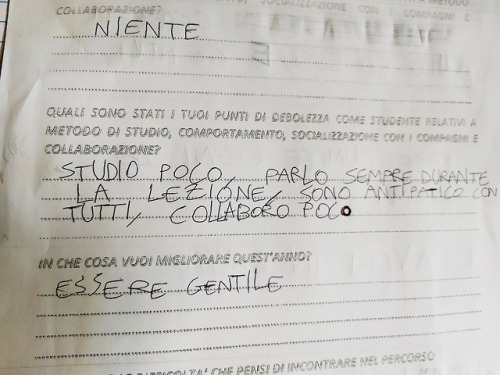 COLLABORAZIONE?
NIENTE
QUALI SONO STATI I TUOI PUNTI DI DEBOLEZZA COME STUDENTE RELATIVI A
METODO DI STUDIO, COMPORTAMENTO, SOCIALIZZAZIONE CON I COMPAGNI E
COLLABORAZIONE?
STUDIO POCO, PARLO SEMPRE DURANTE
LA LEZIONE, SONO ANTIPATICO CON
TUTTI, COLLABORO POCO
IN CHE COSA VUOI MIGLIORARE QUEST'ANNO?
ESSERE GENTILE
CHE PENSI DI INCONTRARE NEL PERCORSO